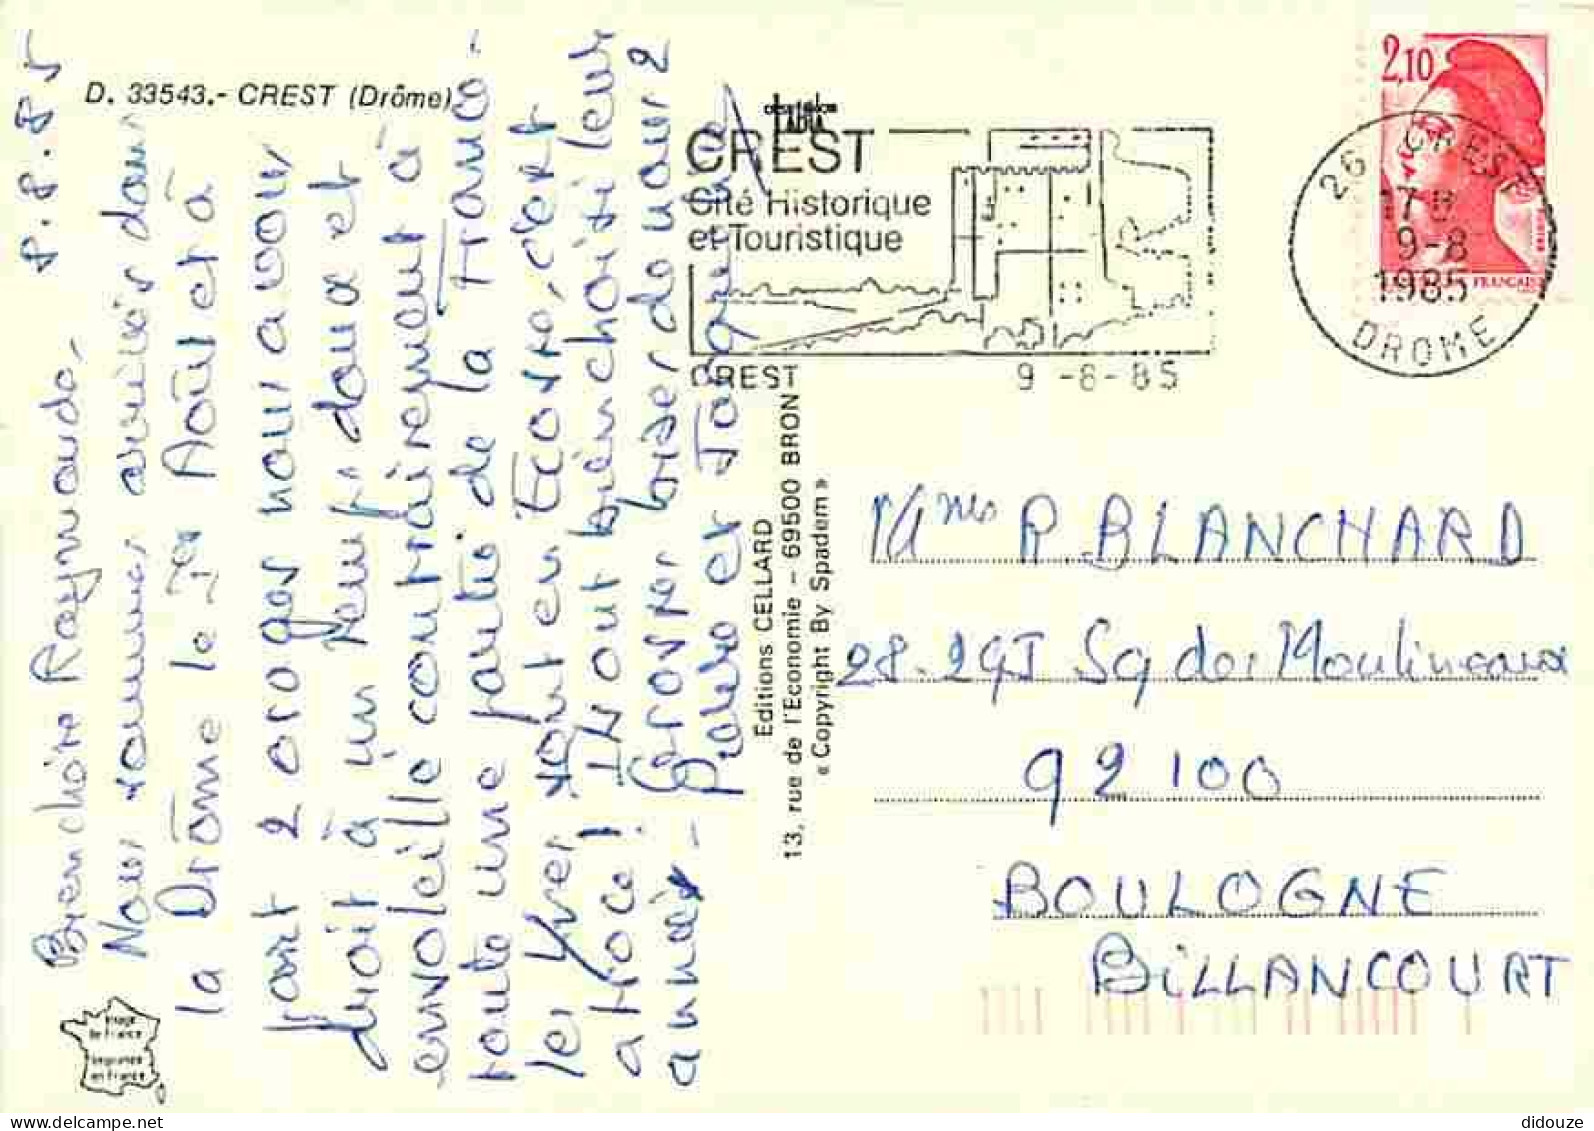 8.8.85
D. 33543.- CREST (Drôme)
Bien chère Raymonde -
Nous sommes arrivés dans
la Drôme le 1er Août et à
part 2 orages nous avons
droit à un temps doux et
ensoleillé contrairement à
toute une partie de la France -
les Yves sont en Ecosse, c'est
atroce! Ils ont bien choisi leur
année - Grosses bises de nous 2
Paule et Jacques
Editions CELLARD
13, rue de l'Economie - 69500 BRON
« Copyright By Spadem »
Image
de France
Imprimée
en France
CREST
Cité Historique
et Touristique
CREST
9 -8-85
2,10
26 CREST
17 H
9-8
1985
DROME
FRANÇAISE
Mmes P BLANCHARD
28-29I Sq des Moulineaux
92100
BOULOGNE
BILLANCOURT
delcampe.net
didouze